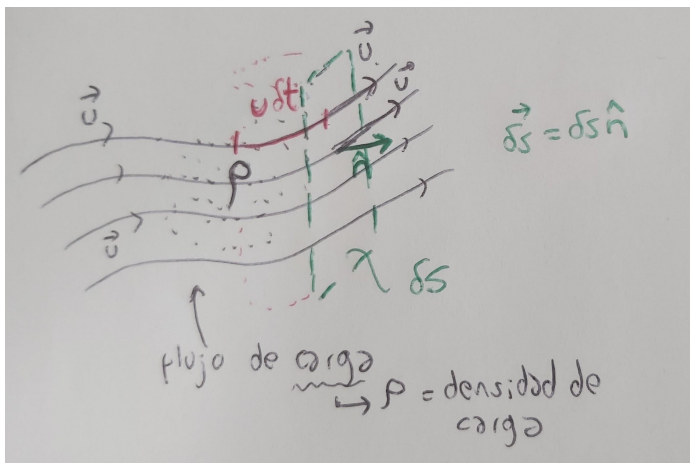 u⃗
u⃗
u⃗
u⃗
uδt
ρ
n̂
δs⃗ = δs n̂
δS
flujo de carga
↳ ρ = densidad de
carga